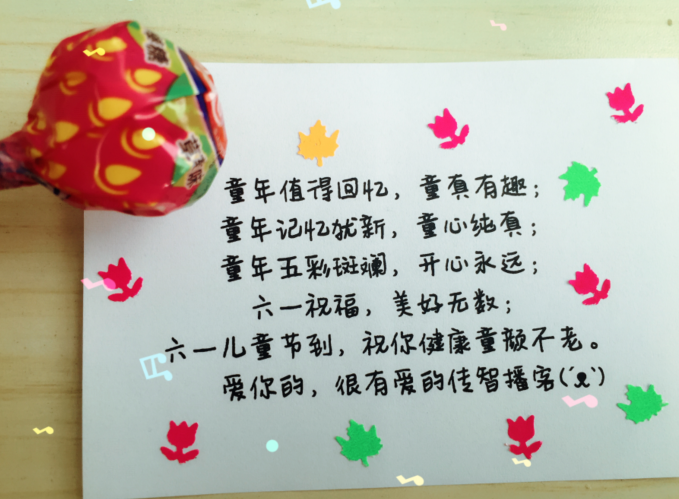 童年值得回忆，童真有趣；
童年记忆犹新，童心纯真；
童年五彩斑斓，开心永远；
六一祝福，美好无数；
六一儿童节到，祝你健康童颜不老。
爱你的，很有爱的传智播客(´ᴥ`)